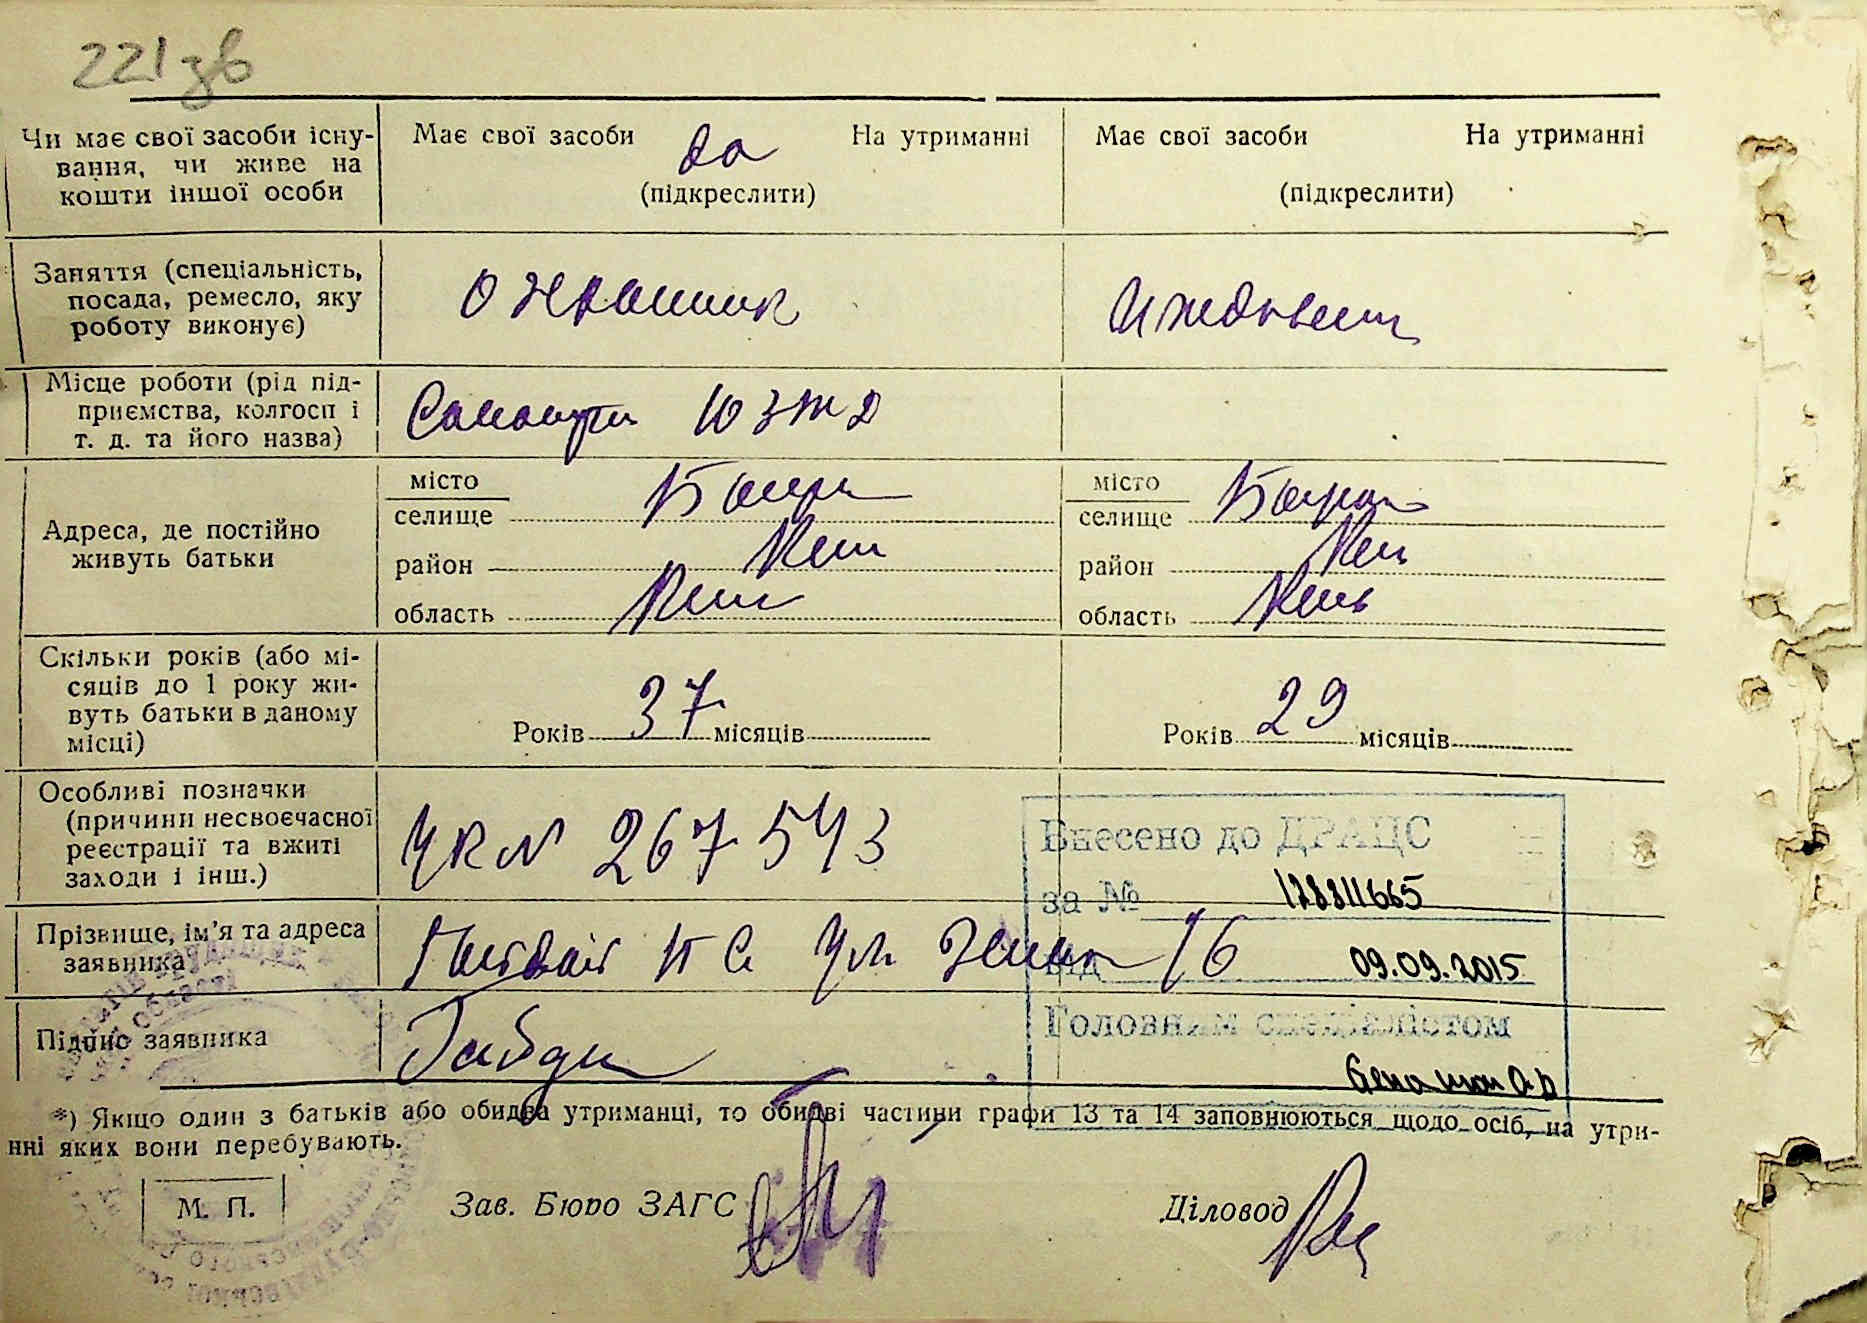 221зв
Чи має свої засоби існу-
вання, чи живе на
кошти іншої особи
Має свої засоби да На утриманні
(підкреслити)
Має свої засоби На утриманні
(підкреслити)
Заняття (спеціальність,
посада, ремесло, яку
роботу виконує)
Охранник
Иждивен
Місце роботи (рід під-
приємства, колгосп і
т. д. та його назва)
ЮЗЖД
Адреса, де постійно
живуть батьки
місто
селище
район
область
місто
селище Бояр
район
область
Скільки років (або мі-
сяців до 1 року жи-
вуть батьки в даному
місці)
Років 37 місяців
Років 29 місяців
Особливі позначки
(причини несвоєчасної
реєстрації та вжиті
заходи і інш.)
УК N 267543
Внесено до ДРАЦС
за № 178811665
від 09.09.2015
Головним спеціалістом
Прізвище, ім'я та адреса
заявника
Ул 16
Підпис заявника
*) Якщо один з батьків або обидва утриманці, то обидві частини графи 13 та 14 заповнюються щодо осіб, на утри-
нні яких вони перебувають.
М. П.
Зав. Бюро ЗАГС
Діловод